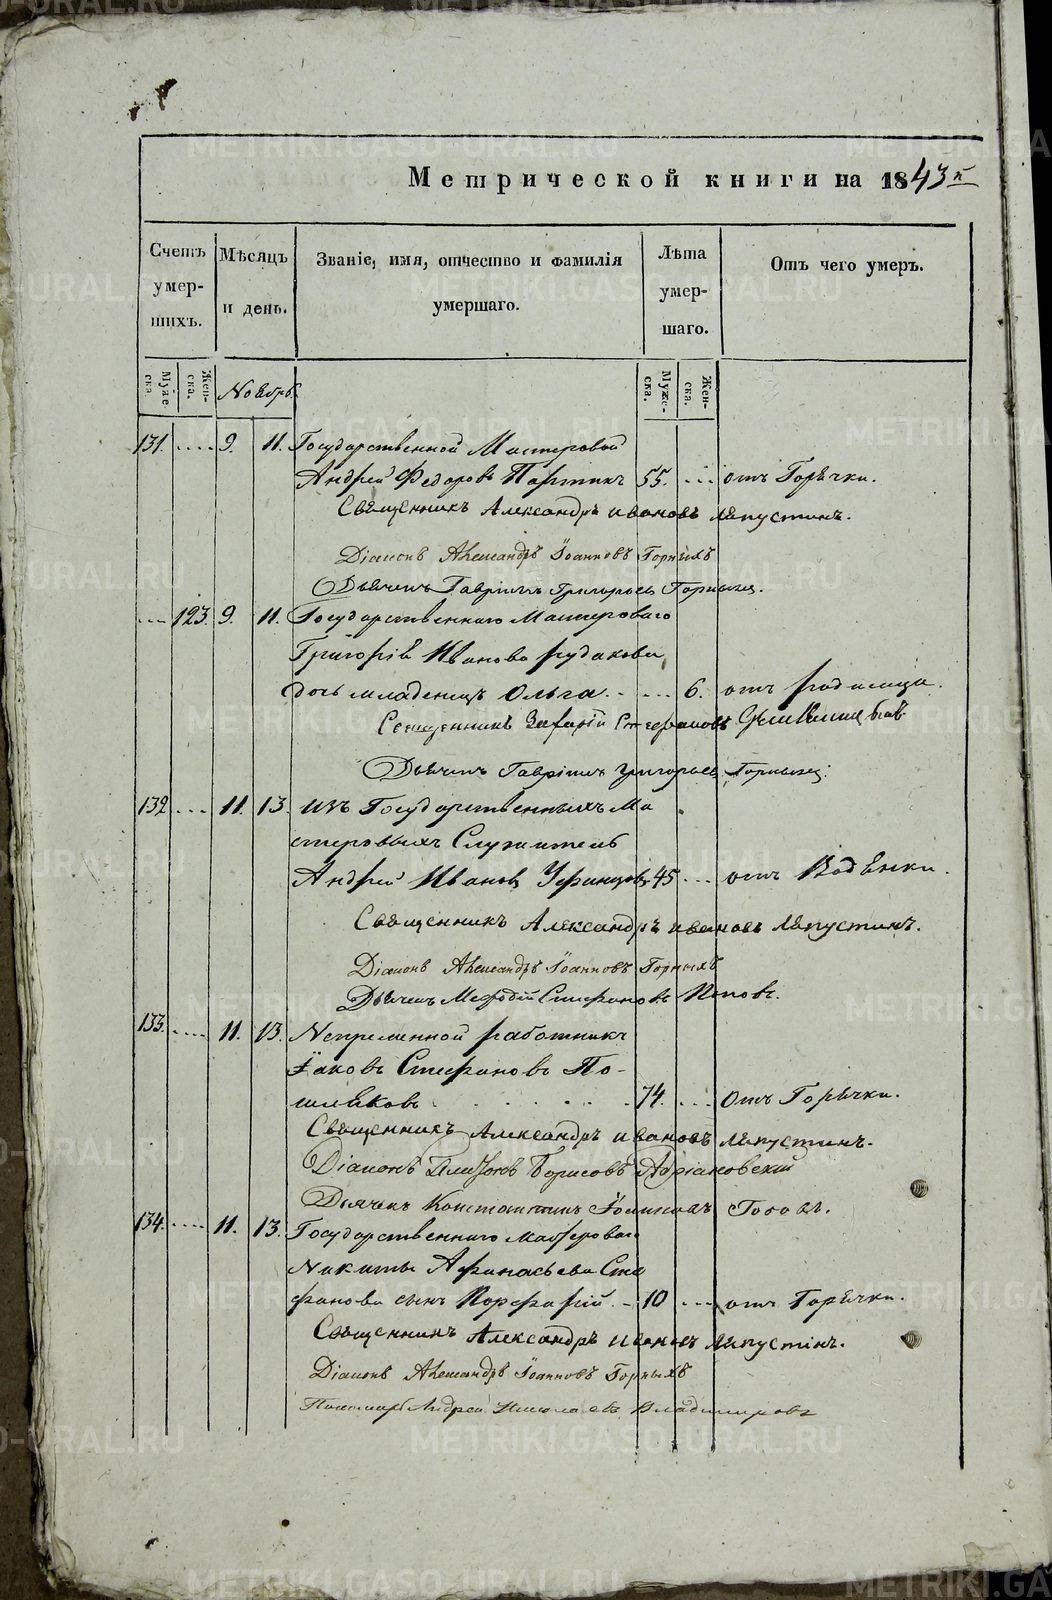 Метрической книги на 1843 г
Счетъ умер-шихъ.
Мѣсяцъ и день.
Званіе, имя, отчество и фамилія умершаго.
Лѣта умер-шаго.
Отъ чего умеръ.
Муже-ска. Жен-ска. Ноябрь. Муже-ска. Жен-ска.
131. .... 9. 11. Государственной Мастеровой
Андрей Федоровъ 55. ... отъ Горѣчки.
Священникъ Александръ Ивановъ Ляпустинъ.
Діаконъ Александръ Іоанновъ Горныхъ
Дьячекъ Гавріилъ Григорьевъ
... 123. 9. 11. Государственнаго Мастероваго
Григорія Иванова Рудакова
дочь младенецъ Ольга. . ... 6. отъ родимца.
Священникъ Захарій Стефановъ
Дьячекъ Гавріилъ Григорьевъ
132 ... 11. 13. изъ Государственныхъ Ма
стеровыхъ Служитель
Андрей Ивановъ Уфинцовъ 45 ... отъ Водѣнки.
Священникъ Александръ Ивановъ Ляпустинъ.
Діаконъ Александръ Іоанновъ Горныхъ
Дьячекъ Мефодій Стефановъ Поповъ.
133. .... 11. 13. Непременной работникъ
Іаковъ Стефановъ По-
74. ... Отъ Горѣчки.
Священникъ Александръ Ивановъ Ляпустинъ.
Діаконъ Платонъ Борисовъ Адріановскій
Дьячекъ Константинъ
134. .... 11. 13. Государственнаго Мастероваго
Никиты Афанасьева Сте
фанова сынъ Порфирій. - 10 ... отъ Горѣчки.
Священникъ Александръ Ивановъ Ляпустинъ.
Діаконъ Александръ Іоанновъ Горныхъ
Пономарь Андрей Николаевъ Владимировъ
METRIKI.GASO-URAL.RU